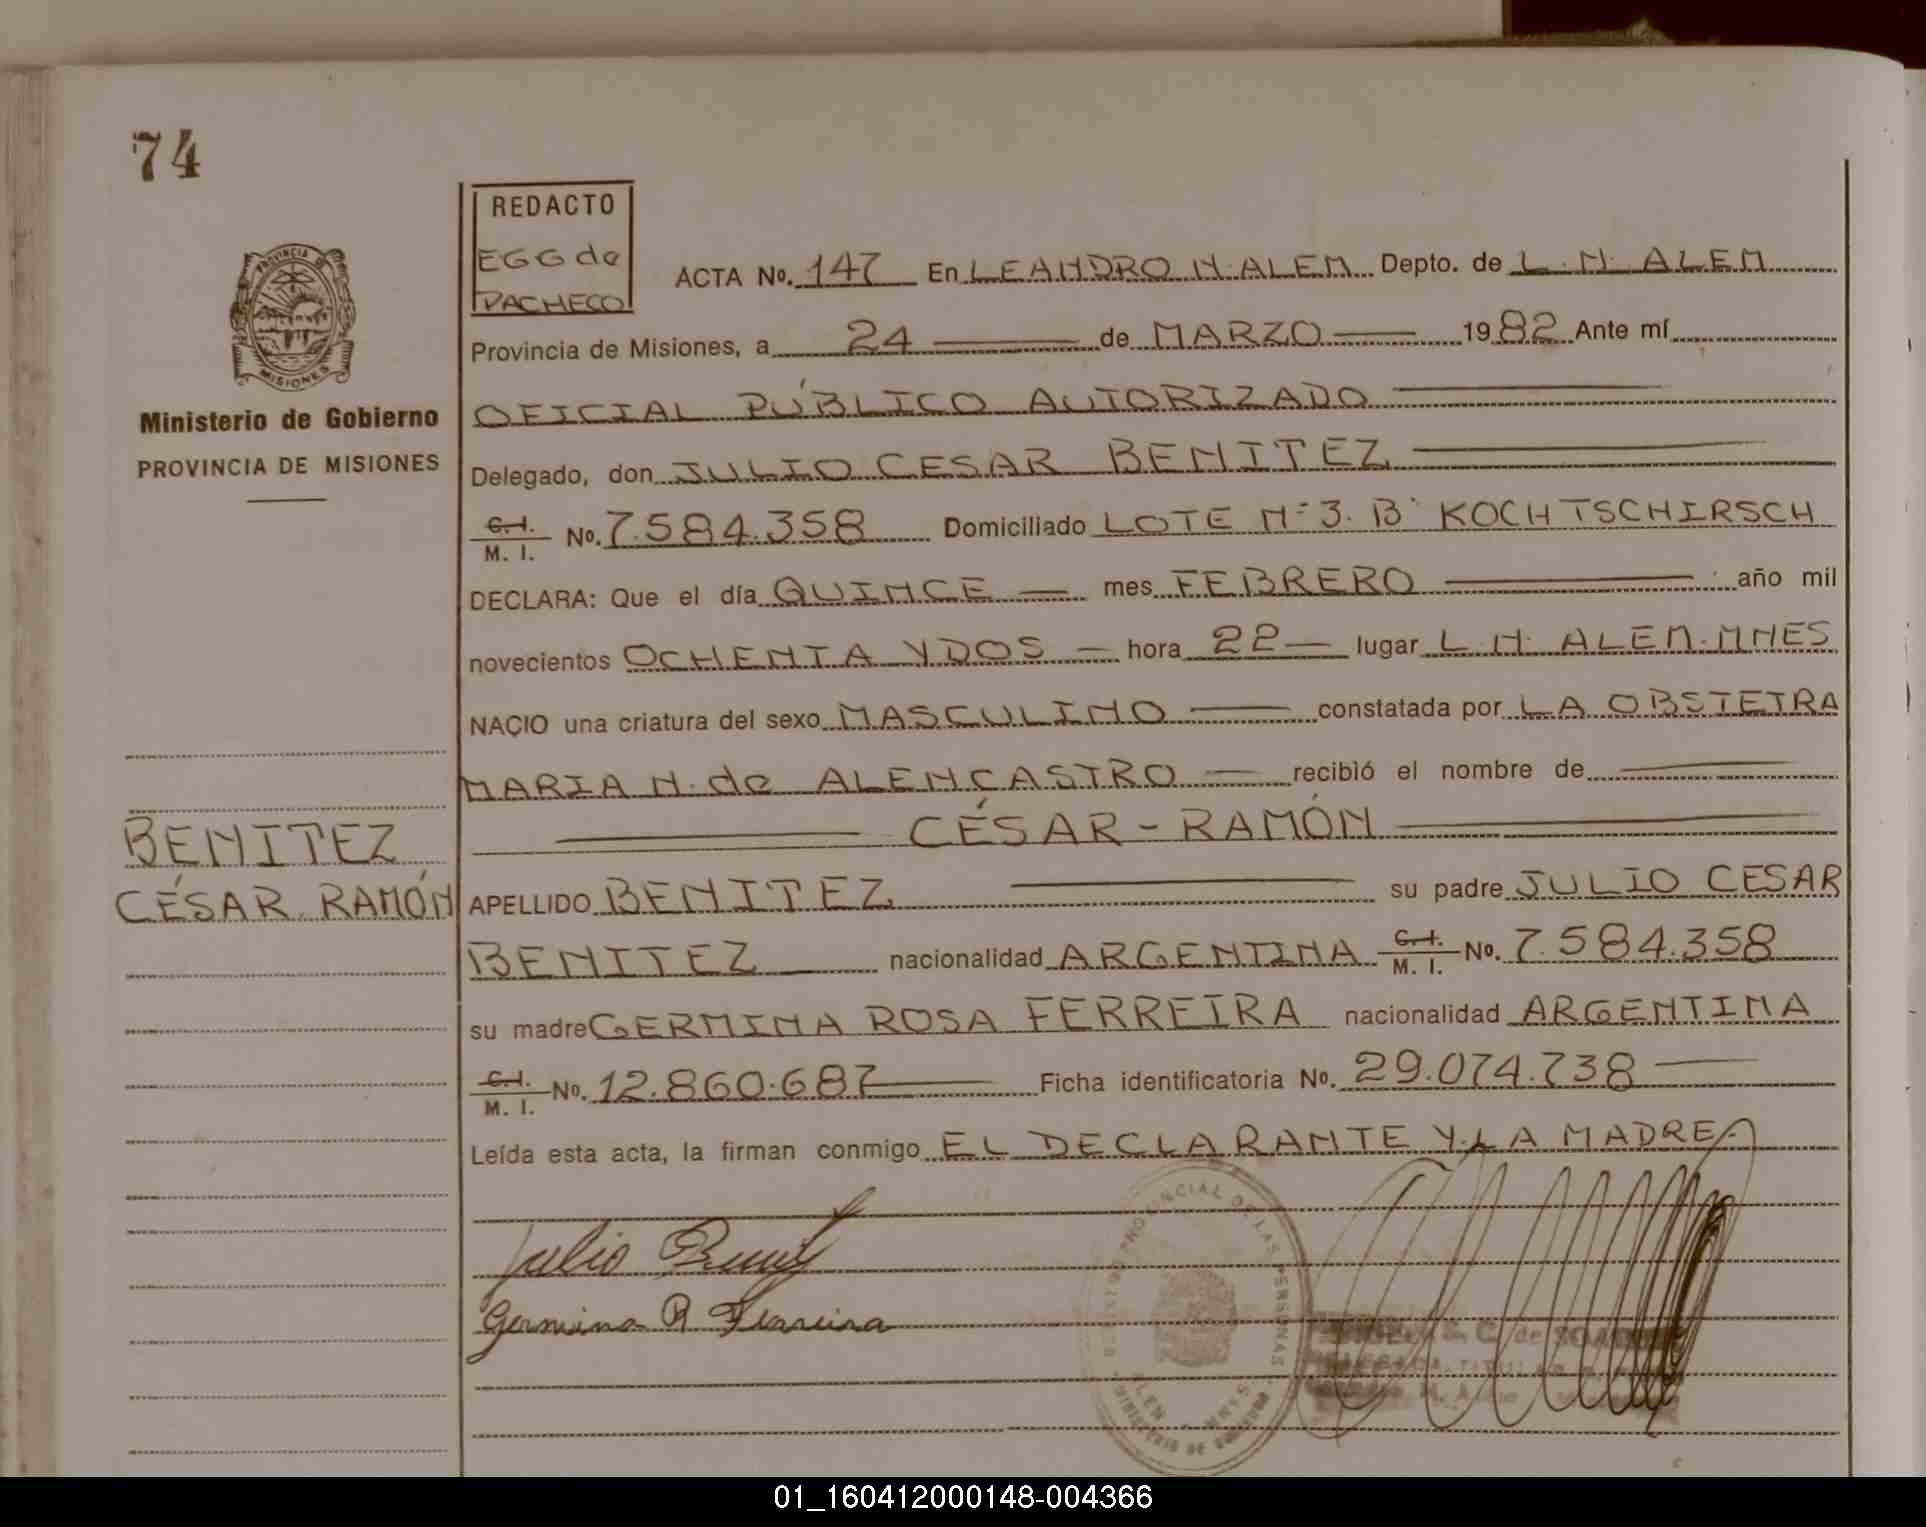 74
REDACTO
EGG de
PACHECO
ACTA No. 147 En LEANDRO N. ALEM Depto. de L. N. ALEM
Provincia de Misiones, a 24 de MARZO 1982 Ante mí
OFICIAL PÚBLICO AUTORIZADO
Delegado, don JULIO CESAR BENITEZ
C. I. / M. I. No. 7.584.358 Domiciliado LOTE Nº 3. Bº KOCHTSCHIRSCH
DECLARA: Que el día QUINCE mes FEBRERO año mil
novecientos OCHENTA Y DOS hora 22 lugar L. N. ALEM. MNES
NACIO una criatura del sexo MASCULINO constatada por LA OBSTETRA
MARIA N. de ALENCASTRO recibió el nombre de
CÉSAR - RAMÓN
APELLIDO BENITEZ su padre JULIO CESAR
BENITEZ nacionalidad ARGENTINA C. I. / M. I. No. 7.584.358
su madre GERMINA ROSA FERREIRA nacionalidad ARGENTINA
C. I. / M. I. No. 12.860.687 Ficha identificatoria No. 29.074.738
Leída esta acta, la firman conmigo EL DECLARANTE Y LA MADRE.
PROVINCIA DE
MISIONES
Ministerio de Gobierno
PROVINCIA DE MISIONES
BENITEZ
CÉSAR RAMÓN
Julio
Germina R Ferreira
PROVINCIAL DE LAS PERSONAS
ALEM MNES
MINISTERIO DE GOBIERNO
S. C. de
TITULAR
01_160412000148-004366